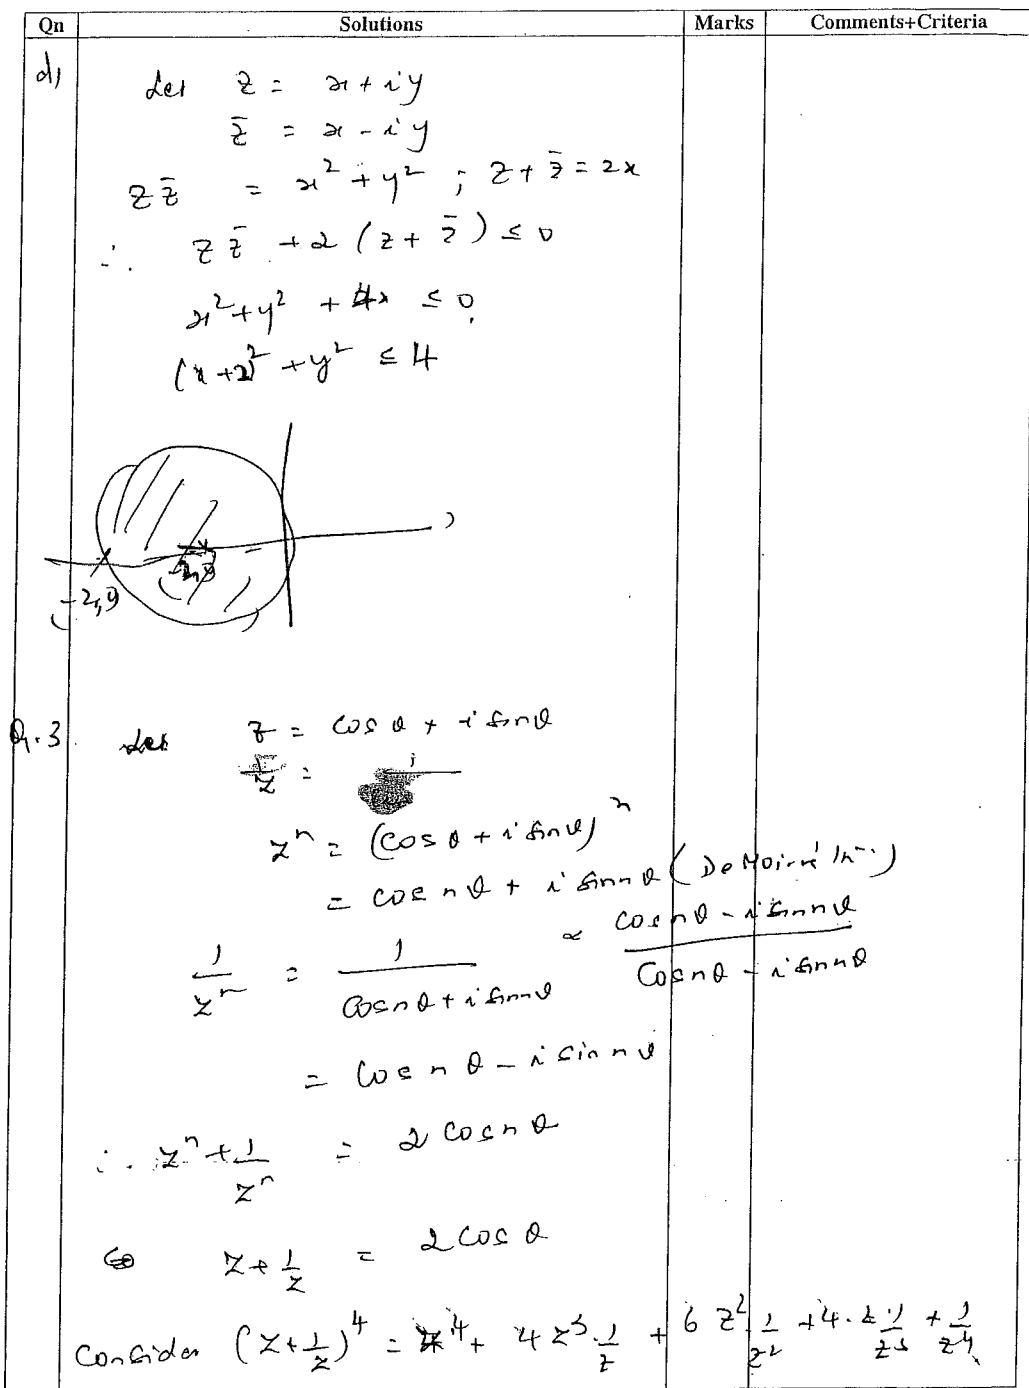 Qn Solutions Marks Comments+Criteria
d) Let z = x + iy
z̄ = x - iy
z z̄ = x² + y² ; z + z̄ = 2x
∴ z z̄ + 2 (z + z̄) ≤ 0
x² + y² + 4x ≤ 0
(x + 2)² + y² ≤ 4
Q.3 Let z = cos θ + i sin θ
1/z =
zⁿ = (cos θ + i sin θ)ⁿ
= cos nθ + i sin nθ (
1/zⁿ = 1/(cos nθ + i sin nθ) × (cos nθ - i sin nθ)/(cos nθ - i sin nθ)
= cos n θ - i sin n θ
∴ zⁿ + 1/zⁿ = 2 cos n θ
z + 1/z = 2 cos θ
Consider (z + 1/z)⁴ = z⁴ + 4 z³ · 1/z + 6 z² · 1/z² + 4 · z · 1/z³ + 1/z⁴